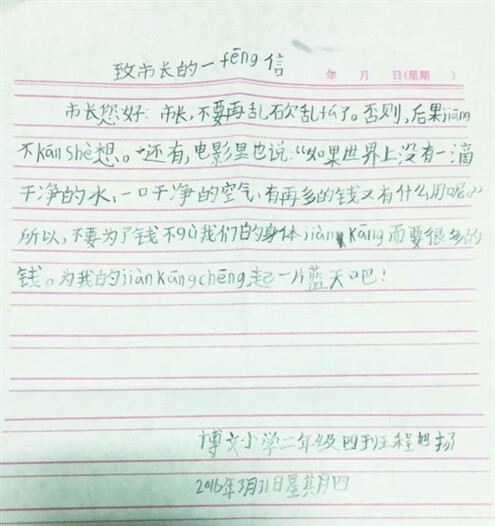 致市长的一fēng信
年 月 日(星期 )
市长您好:市长,不要再乱砍乱伐了。否则,后果jiāng
不kānshè想。还有,电影里也说:“如果世界上没有一滴
干净的水,一口干净的空气,有再多的钱又有什么用呢?”
所以,不要为了钱不gù我们的身体jiànkāng而要很多的
钱。为我的jiànkāngchēng起一片蓝天吧!
博文小学二年级四班程旭扬
2016年3月31日星其月四